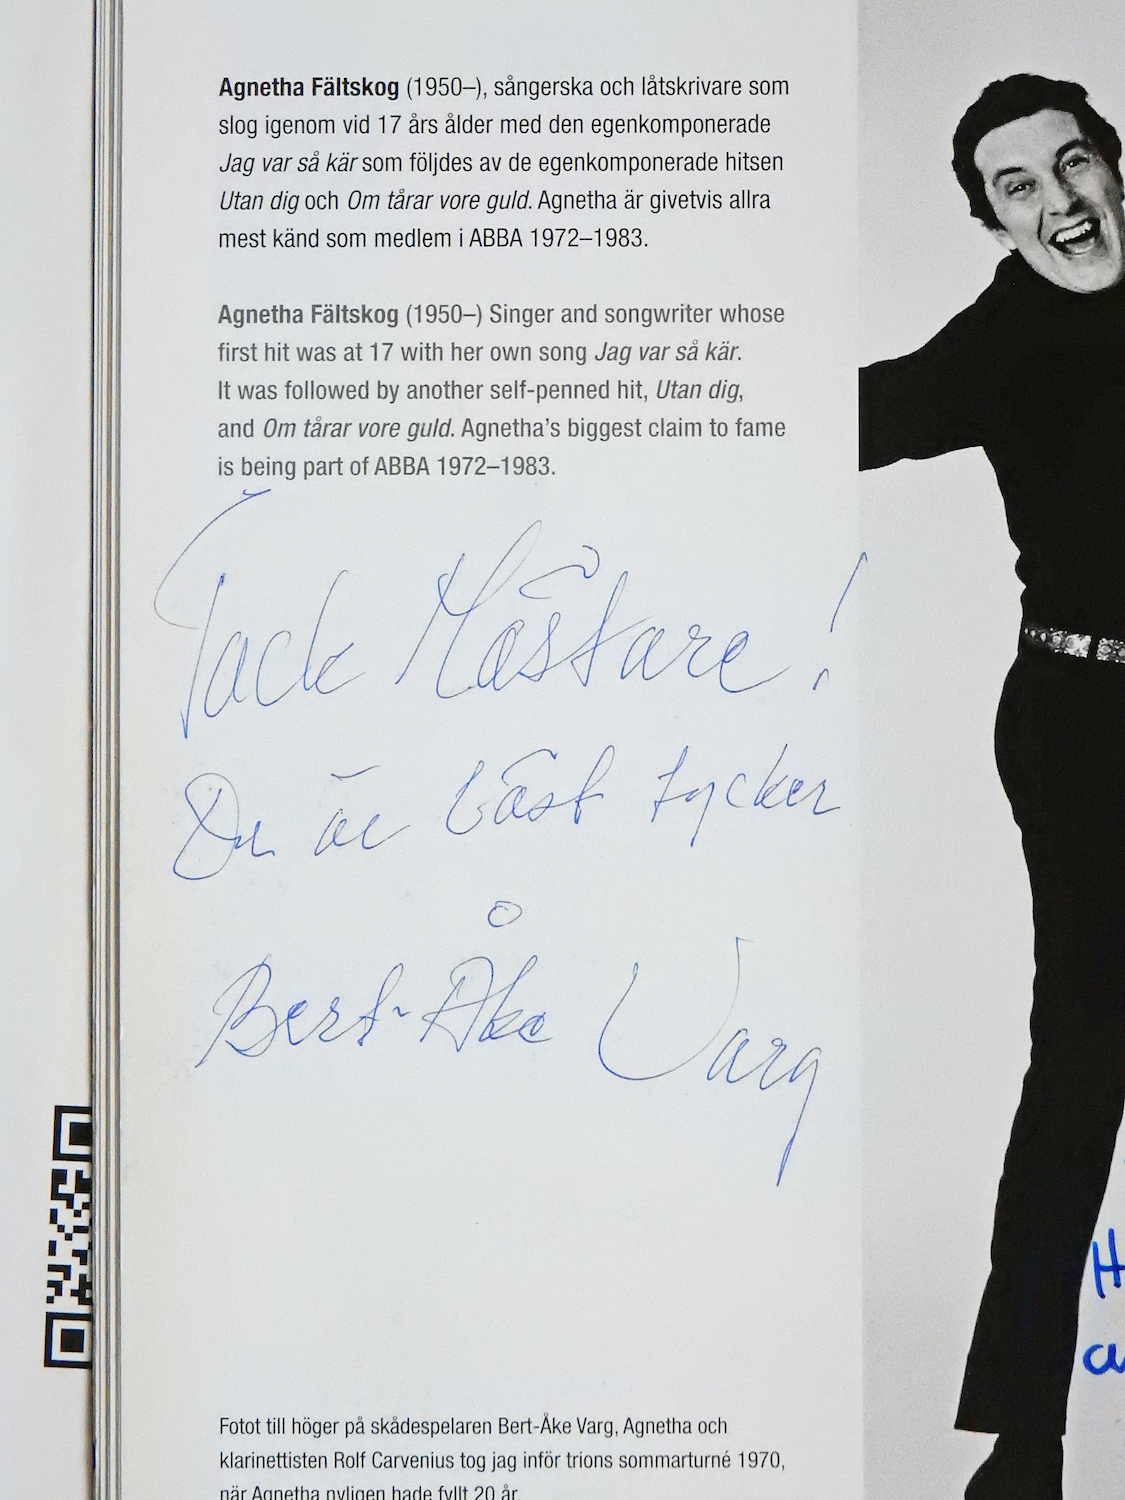 Agnetha Fältskog (1950–), sångerska och låtskrivare som
slog igenom vid 17 års ålder med den egenkomponerade
Jag var så kär som följdes av de egenkomponerade hitsen
Utan dig och Om tårar vore guld. Agnetha är givetvis allra
mest känd som medlem i ABBA 1972–1983.
Agnetha Fältskog (1950–) Singer and songwriter whose
first hit was at 17 with her own song Jag var så kär.
It was followed by another self-penned hit, Utan dig,
and Om tårar vore guld. Agnetha's biggest claim to fame
is being part of ABBA 1972–1983.
Tack Mästare!
Du är bäst tycker
Bert-Åke Varg
Fotot till höger på skådespelaren Bert-Åke Varg, Agnetha och
klarinettisten Rolf Carvenius tog jag inför trions sommarturné 1970,
när Agnetha nyligen hade fyllt 20 år.